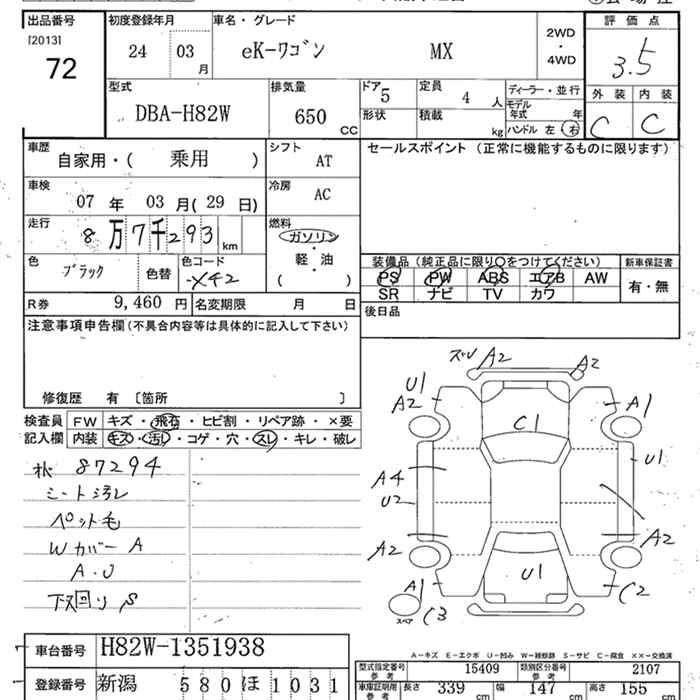 出品番号 初度登録年月 車名・グレード 2WD・4WD 評価点
[2013]
72 24 03月 eK-ワゴン MX 3.5
型式 DBA-H82W 排気量 650 CC
ドア 5 定員 4人 ディーラー・並行 外装 内装
形状 積載 kg モデル年式 年 C C
ハンドル 左 右
車歴 自家用・( 乗用 ) シフト AT セールスポイント (正常に機能するものに限ります)
車検 07年 03月(29日) 冷房 AC
走行 8万7千293km 燃料 ガソリン・軽・油 ( )
色 ブラック 色替 色コード X42
装備品(純正品に限り○をつけてください) 新車保証書
PS PW ABS エアB AW 有・無
SR ナビ TV カワ
R券 9,460 円 名変期限 月 日 後日品
注意事項申告欄(不具合内容等は具体的に記入して下さい)
修復歴 有 〔箇所 〕
検査員 FW キズ・飛石・ヒビ割・リペア跡・×要
記入欄 内装 キズ・汚レ・コゲ・穴・スレ・キレ・破レ
87294
シート汚レ
ペット毛
Wカバー A
A.U
下ス回り S
ズレ A2 A2
U1
A2 A1
C1
U1
A4
U2
A2 A2
U1
A1 C2
スペア C3
A-キズ E-エクボ U-凹み W-補修跡 S-サビ C-腐食 ××-交換済
車台番号 H82W-1351938
型式指定番号 参考 15409 類別区分番号 参考 2107
登録番号 新潟 580 ほ 1031
車庫証明用 参考 長さ 339 cm 幅 147 cm 高さ 155 cm